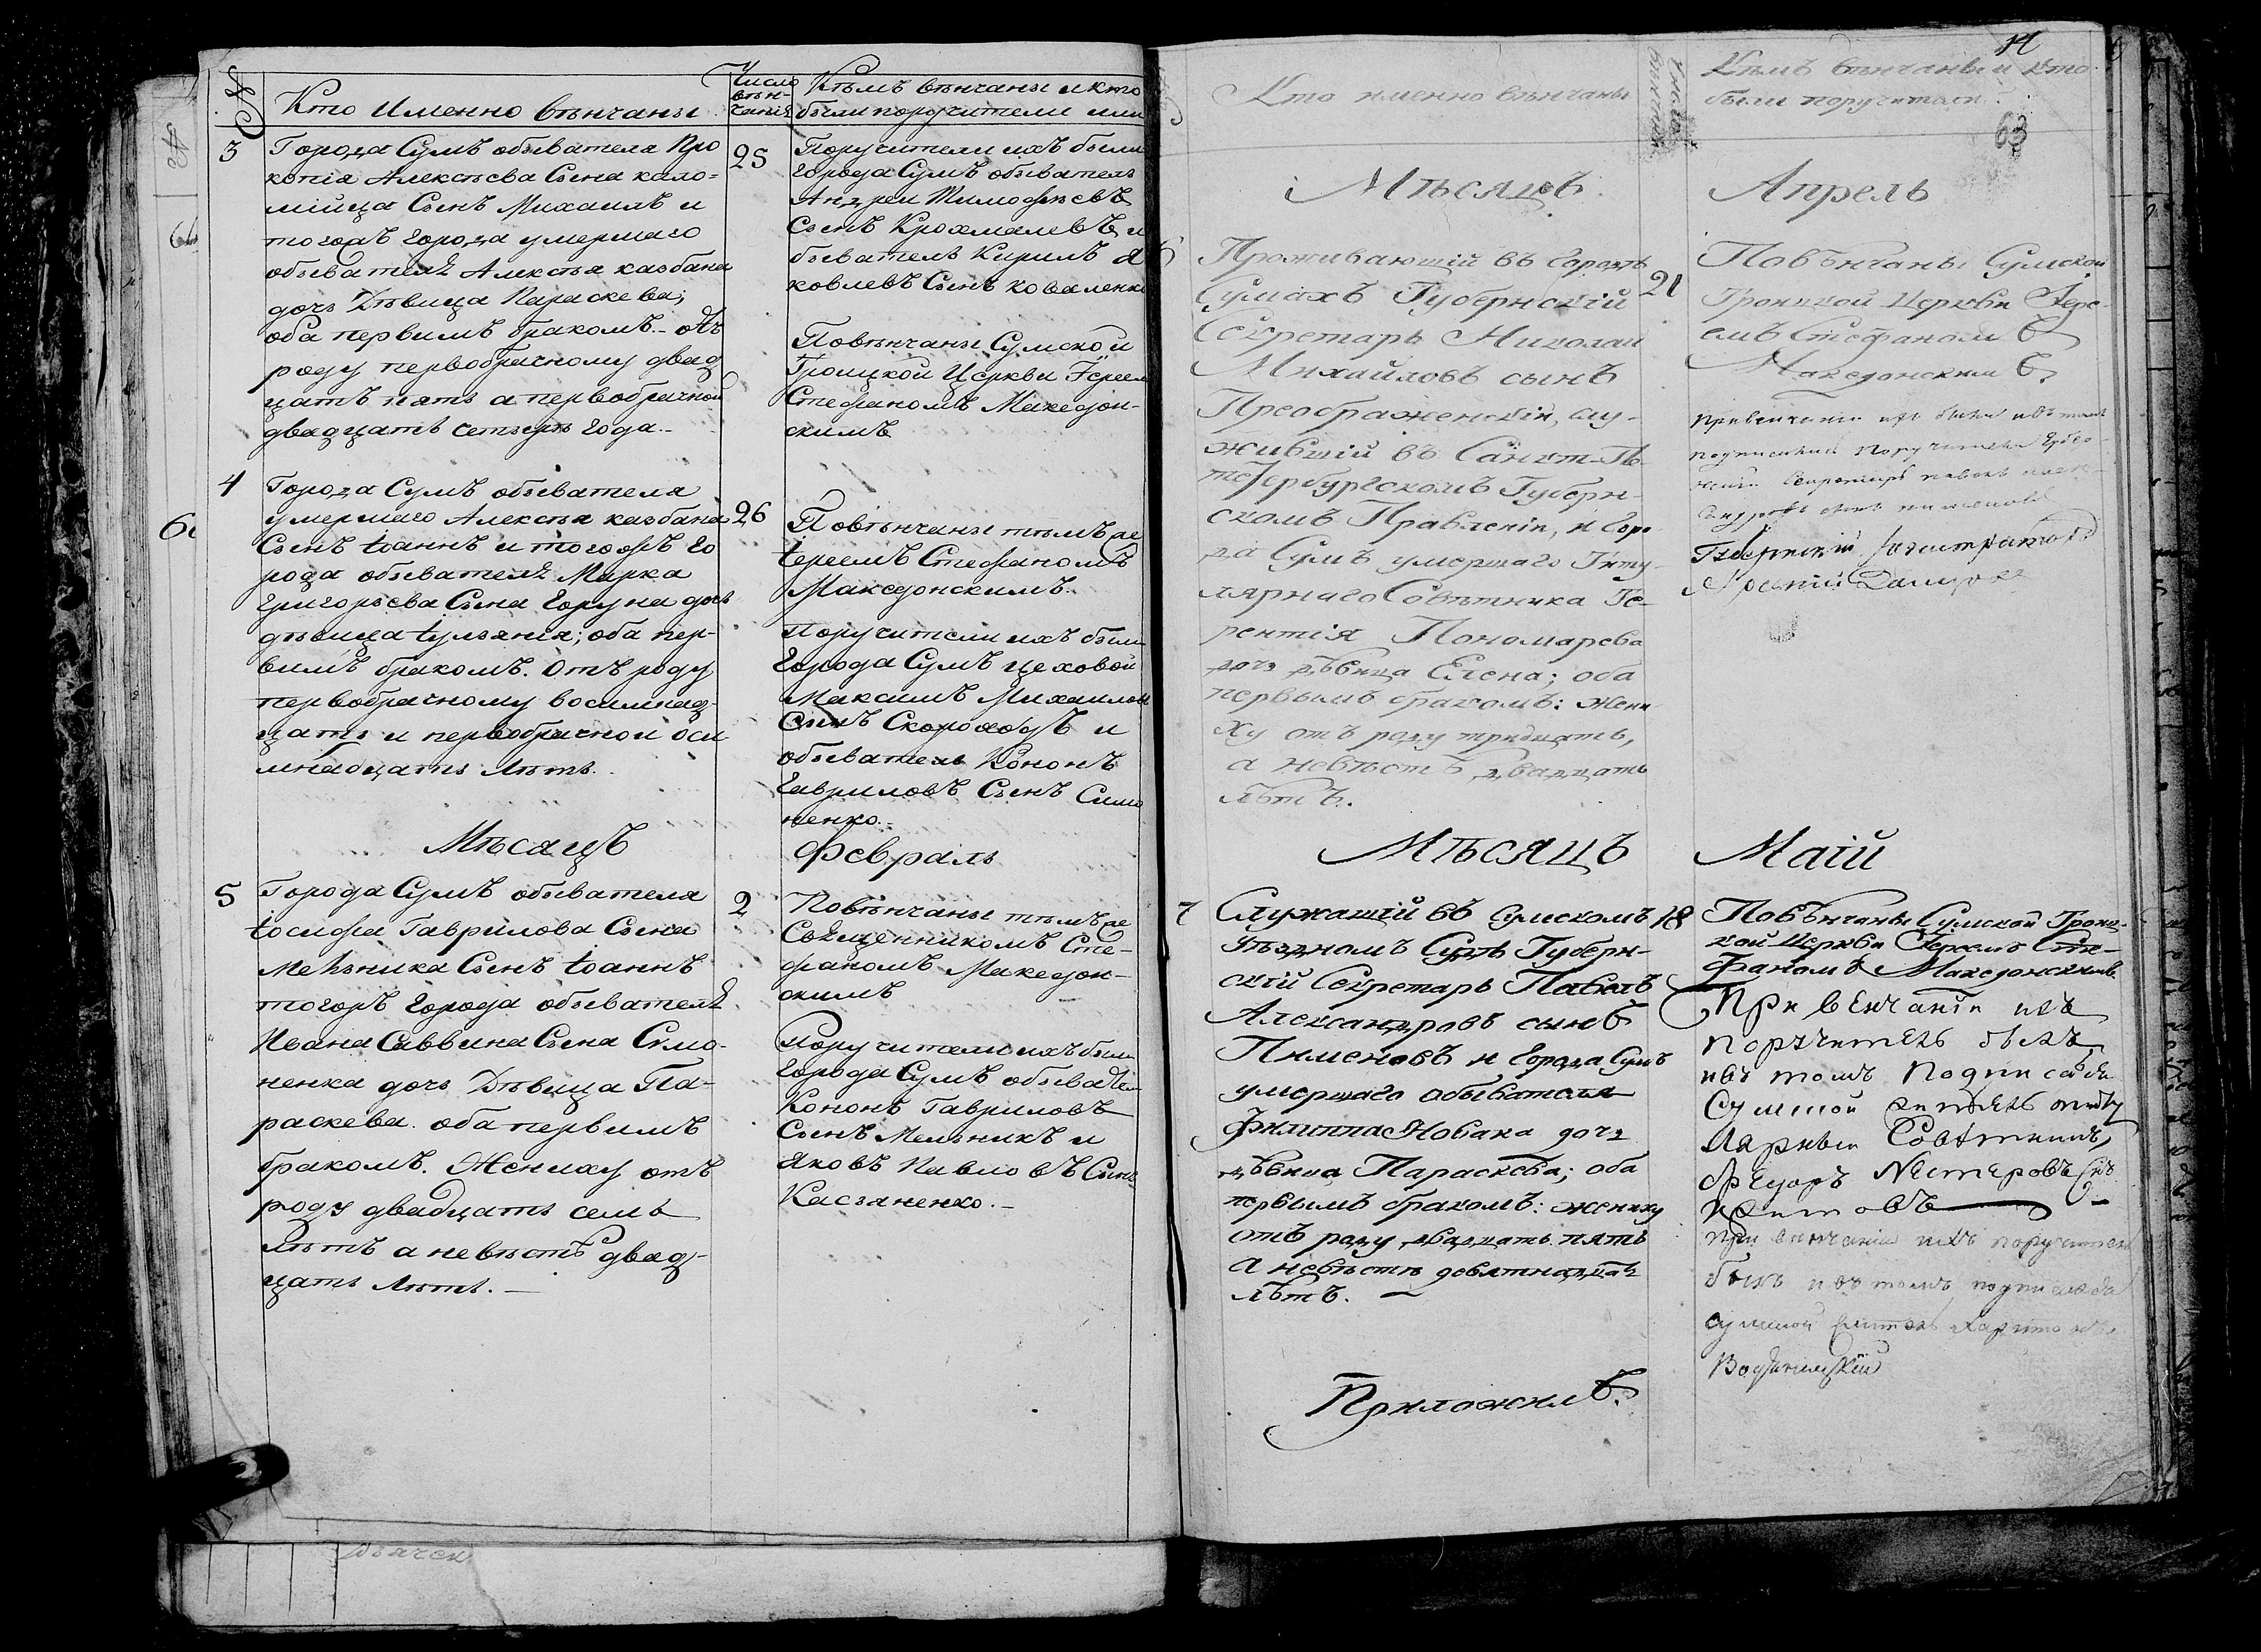 №
Кто именно вѣнчаны
Число
вѣн-
чанія
Кѣмъ вѣнчаны и кто
были поручители или
3
Города Сумъ обывателя Про
копія Алексѣева Сына коло-
мійца Сынъ Михаилъ и
тогожъ города умершаго
обывателя Алексѣя казбана
дочь Дѣвица Параскева;
оба первимъ бракомъ. отъ
роду первобрачному двад
цать пять а первобрачной
двадцать четыре года.
25
Поручители ихъ были
города Сумъ обыватель
Андрей Тимофѣевъ
Сынъ Крохмалевъ и
обыватель Кирилъ Я
ковлевъ Сынъ коваленко
Повѣнчаны Сумской
Троицкой Церкви Іереем
Стефаномъ Македон-
скимъ
4
Города Сумъ обывателя
умершаго Алексѣя казбана
Сынъ Іоаннъ и тогожъ го
рода обывателя Марка
Григорьева Сына Горуна дочь
дѣвица Іульянія; оба пер-
вимъ бракомъ. отъ роду
первобрачному восимнад-
цать и первобрачной оси
мнадцать лѣтъ.
26
Повѣнчаны тѣмъ же
Іереемъ Стефаномъ
Македонскимъ.
Поручители ихъ были
Города Сумъ цеховой
Максимъ Михаиловъ
Сынъ Скороходъ и
обыватель Кононъ
Гавриловъ Сынъ Симо
ненко.
Мѣсяцъ
Февраль
5
Города Сумъ обывателя
Іосифа Гаврилова Сына
Мельника Сынъ Іоаннъ
тогожъ Города обывателя
Ивана Саввина Сына Симо-
ненка дочь Дѣвица Па-
раскева. оба первимъ
бракомъ. Жениху отъ
роду двадцать семь
Лѣтъ а невѣстѣ двад-
цать Лѣтъ.
2
Повѣнчаны тѣмъ же
Священникомъ Сте-
фаномъ Македон-
скимъ
Поручители ихъ были
Города Сумъ обыватели
Кононъ Гавриловъ
Сынъ Мельникъ и
Яковъ Павловъ Сынъ
Касьяненко.
14
Кто именно вѣнчаны
Кѣмъ вѣнчаны и кто
были поручители.
63
Мѣсяцъ
Апрель
Проживающій въ городѣ
Сумахъ Губернскій
Секретарь Николай
Михайловъ сынъ
Преображенскій, слу-
жившій въ Санкт-Пе-
тербургскомъ Губерн-
скомъ Правленіи, и горо-
да Сумъ умершаго Титу-
лярнаго Совѣтника Те-
рентія Пономарева
дочь дѣвица Елена; оба
первымъ бракомъ: жени
ху отъ роду тридцать,
а невѣстѣ двадцать
лѣтъ.
21
Повѣнчаны Сумской
Троицкой Церкви Іере-
емъ Стефаномъ
Македонскимъ.
Губернскій
Мѣсяцъ
Маій
7
Служащій въ Сумскомъ
Уѣздномъ Судѣ Губерн-
скій Секретарь Павелъ
Александровъ сынъ
Пименовъ и города Сумъ
умершаго обывателя
Филиппа Новака дочь
дѣвица Параскева; оба
первымъ бракомъ: жениху
отъ роду двадцать пять
а невѣстѣ девятнадцать
лѣтъ.
18
Повѣнчаны Сумской Троиц-
кой Церкви Іереемъ Сте-
фаномъ Македонскимъ
При венчаніи ихъ
поручитель былъ
и въ томъ подписался
Сумской житель титу
лярный Совѣтникъ
Нестеровъ
При венчаніи ихъ поручителъ
былъ и въ томъ подписался
сумской житель
Приложилъ.